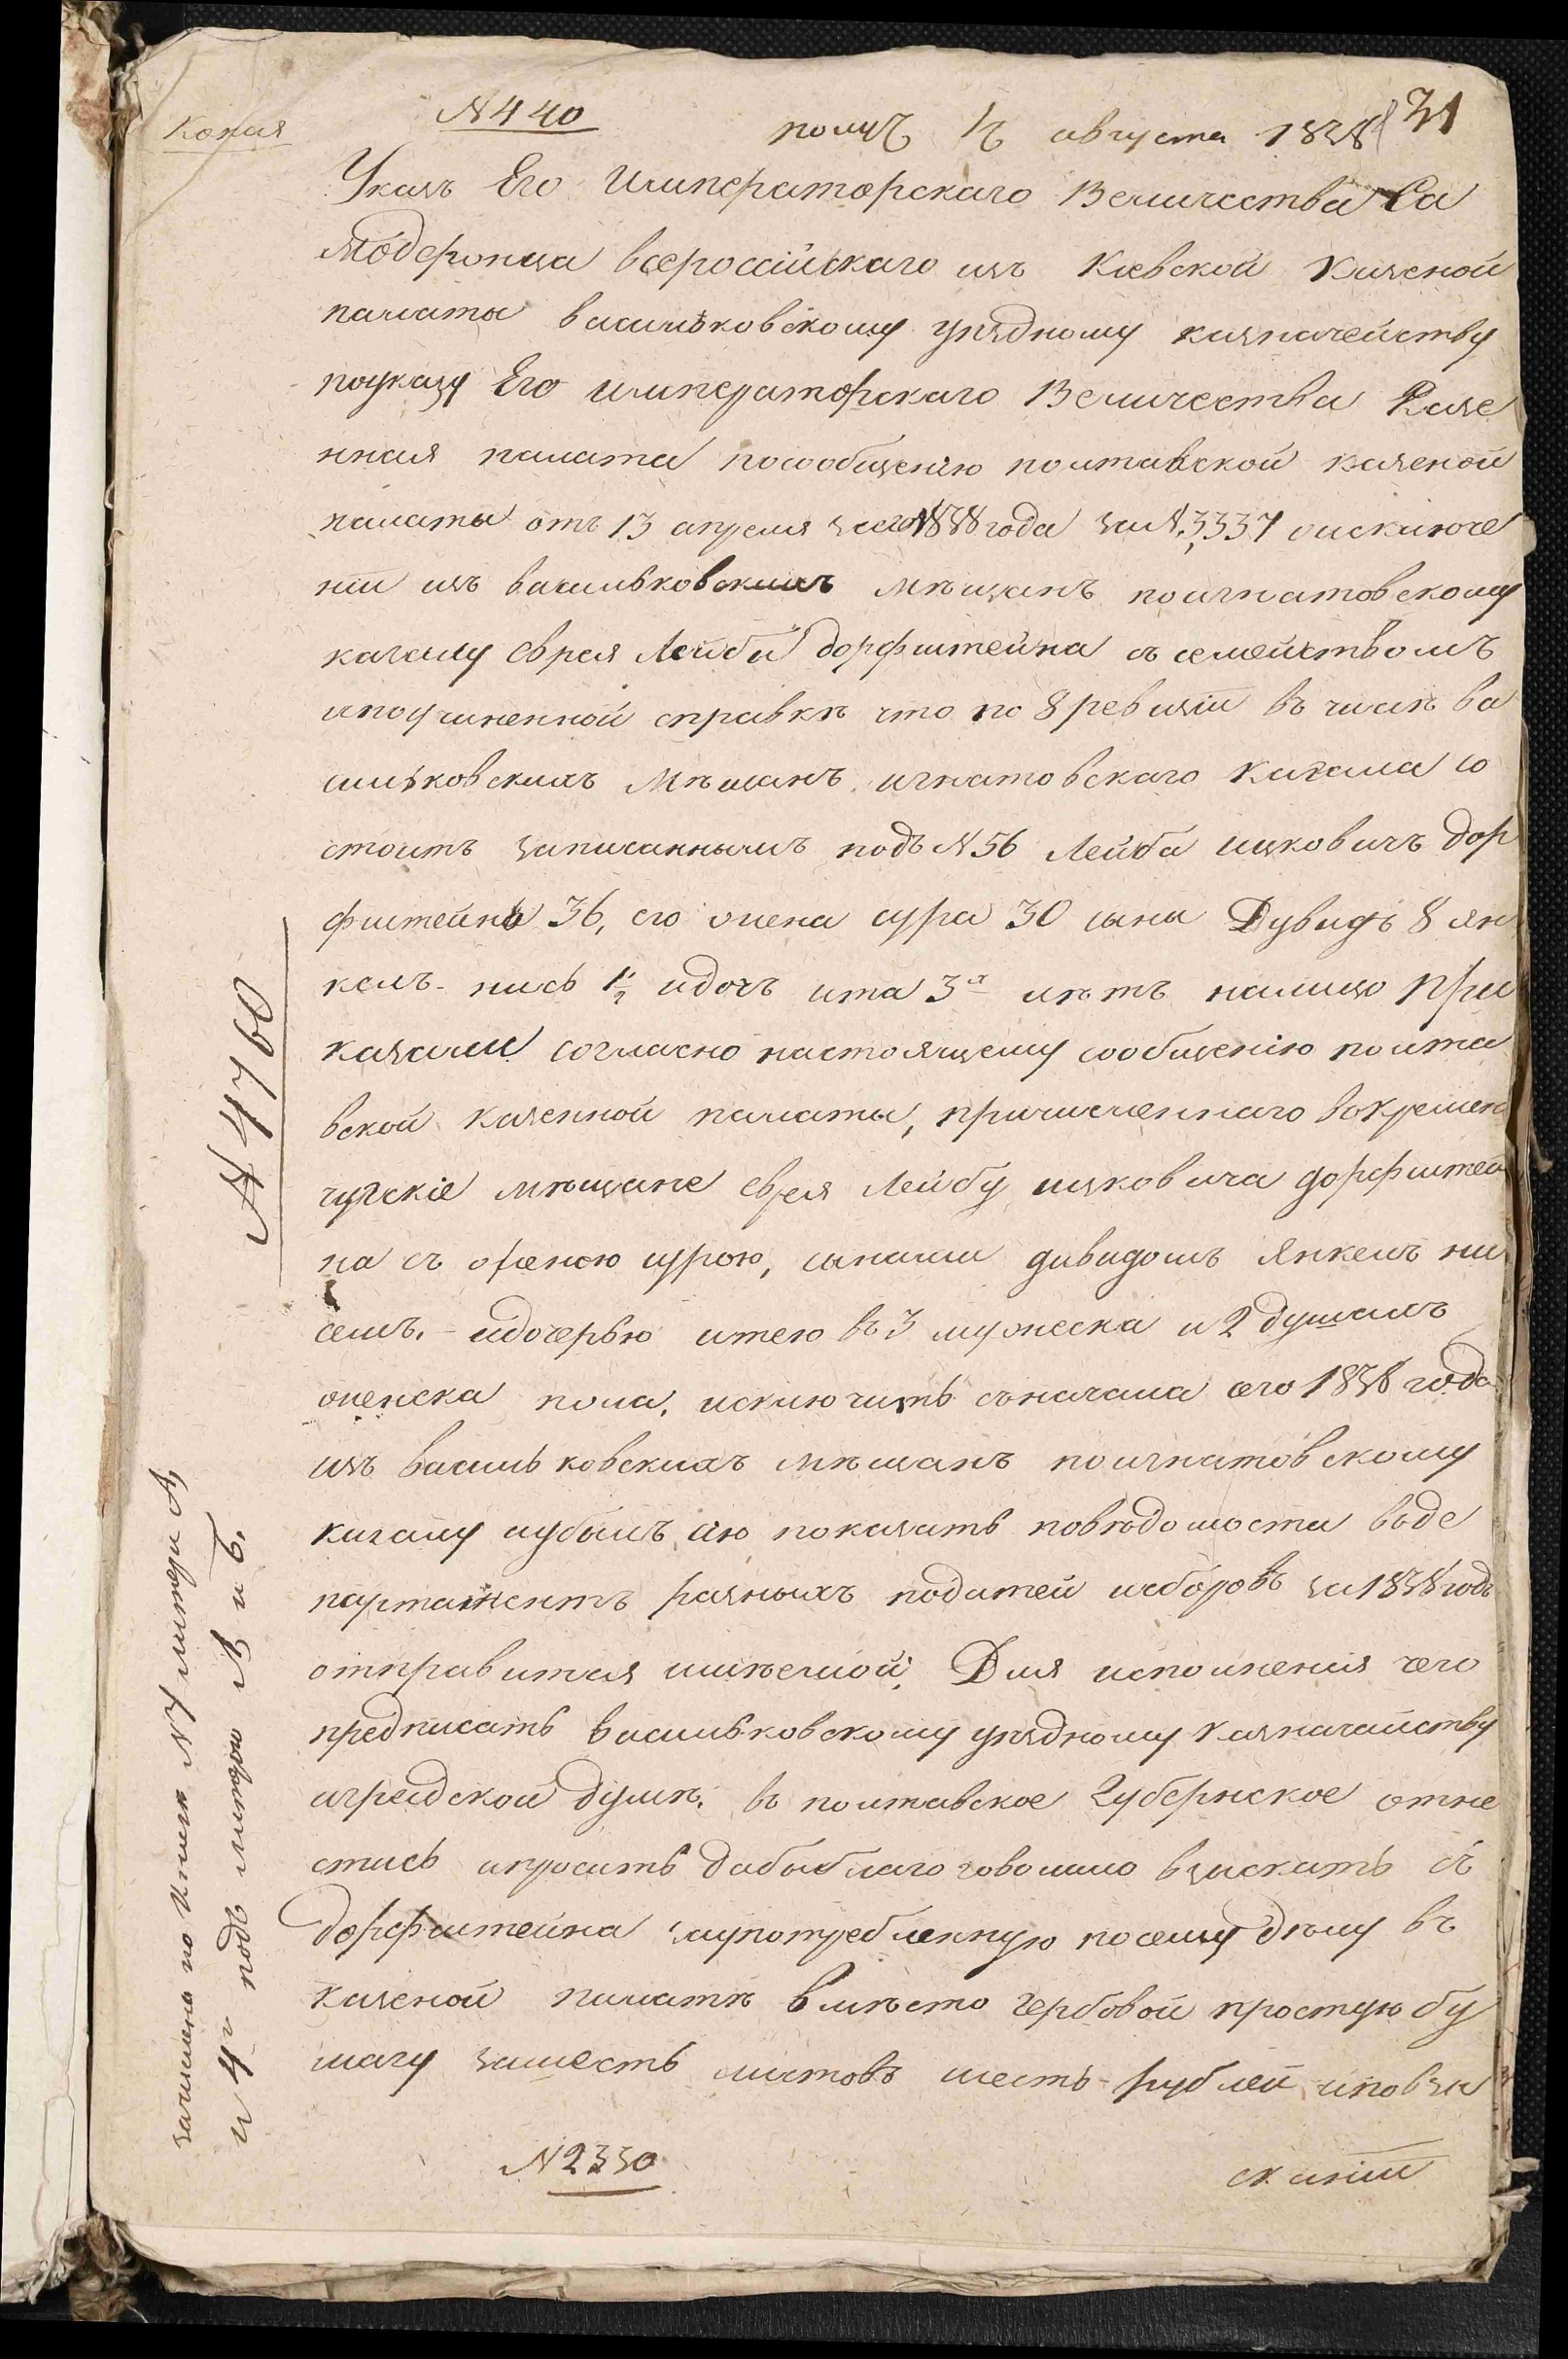 Копия
N440
получ 12 августа 1838
31
Указъ Его Императорскаго Величества Са
модержца всероссійскаго изъ Киевской Казеной
палаты васильковскому уѣздному казначейству
поуказу Его императорскаго Величества Казе
нная палата посообщенію полтавской казеной
палаты отъ 13 апреля сего 1838 года за N. 3337 оисключе
ніи изъ васильковскихъ мѣщанъ поигнатовскому
кагалу еврея Лейбы дорфштейна съ семействомъ
ипоучиненной справкѣ что по 8 ревизіи въ числѣ ва
сильковскихъ мѣщанъ игнатовскаго кагала со
стоитъ записаннымъ подъ N56 Лейба ицковичъ Дор
фштейнъ 36, его жена сура 30 сыны Дувидъ 8 ян
кель-нись 1½ идочь ита 3х лѣтъ налицо При
казали согласно настоящему сообщенію полта
вской казенной палаты, причисленнаго вокремен
чугскіе мѣщане еврея Лейбу ицковича дорфштей
на съ женою сурою, сынами дивидомъ Янкель ни
семъ. - идочерью итею въ 3 мужеска и 2 душахъ
женска пола, исключить сначала сего 1838 года
изъ васильковскихъ мѣщанъ поигнатовскому
кагалу иубыль сію показать повѣдомости воде
партаментъ разныхъ податей исборовъ за 1838 годъ
отправится имѣемой, Для исполнения чего
предписать васильковскому уѣздному казначейству
иградской думѣ. въ полтавское Губернское отне
стись ипросить дабы благоговолило взыскать съ
Дорфштейна употребленную посему дѣлу въ
казеной палатѣ вмѣсто гербовой простую бу
магу зашесть листовъ шесть рублей иповзы
N2330
сканіи
N 4760
зачислено по Книгѣ N4 литера А,
и 4й подъ литерою А и б.